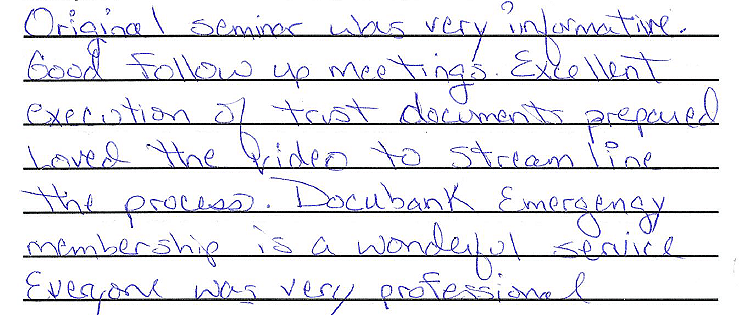 Original seminar was very informative.
Good follow up meetings. Excellent
execution of trust documents prepared
Loved the video to stream line
the process. Docubank Emergency
membership is a wonderful service
Everyone was very professional